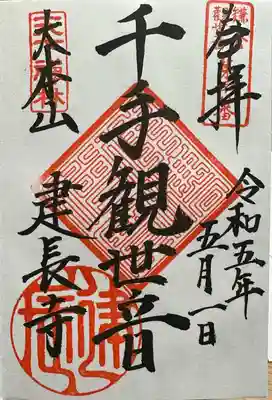 奉拝
令和五年
五月一日
千手観世音
大本山
建長寺